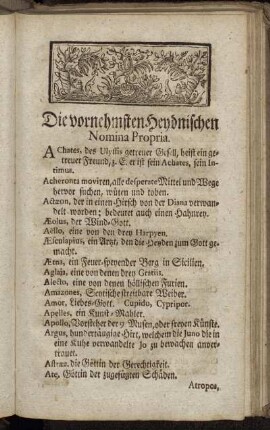 Die vornehmsten Heydnischen
Nomina Propria.
AChates, des Ulyssis getreuer Gesell, heist ein ge-
treuer Freund, z. E. er ist sein Achates, sein In-
timus.
Acheronta moviren, alle desperate Mittel und Wege
hervor suchen, wüten und toben.
Actæon, der in einen Hirsch von der Diana verwan-
delt worden; bedeutet auch einen Hahnrey.
Æolus, der Wind-Gott.
Aëllo, eine von den drey Harpyen.
Æsculapius, ein Artzt, den die Heyden zum Gott ge-
macht.
Ætna, ein Feuer-speyender Berg in Sicilien.
Aglaja, eine von denen drey Gratiis.
Alecto, eine von denen höllischen Furien.
Amazones, Scytische streitbare Weiber.
Amor, Liebes-Gott, Cupido, Cypripor.
Apelles, ein Kunst-Mahler.
Apollo, Vorsteher der 9 Musen, oder freyen Künste.
Argus, hunderäugige Hirt, welchem die Juno die in
eine Kuhe verwandelte Jo zu bewachen anver-
trauet.
Astræa, die Göttin der Gerechtigkeit.
Ate, Göttin der zugefügten Schäden.
Atropos,